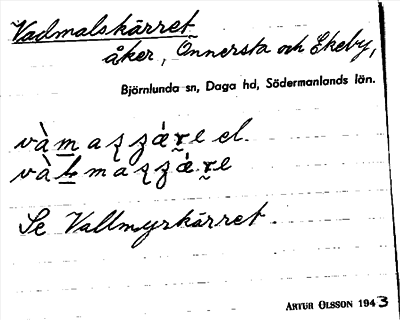 Vadmalskärret
åker, Onnersta och Ekeby,
Björnlunda sn, Daga hd, Södermanlands län.
el.
Se Vallmyrkärret.
ARTUR OLSSON 1943